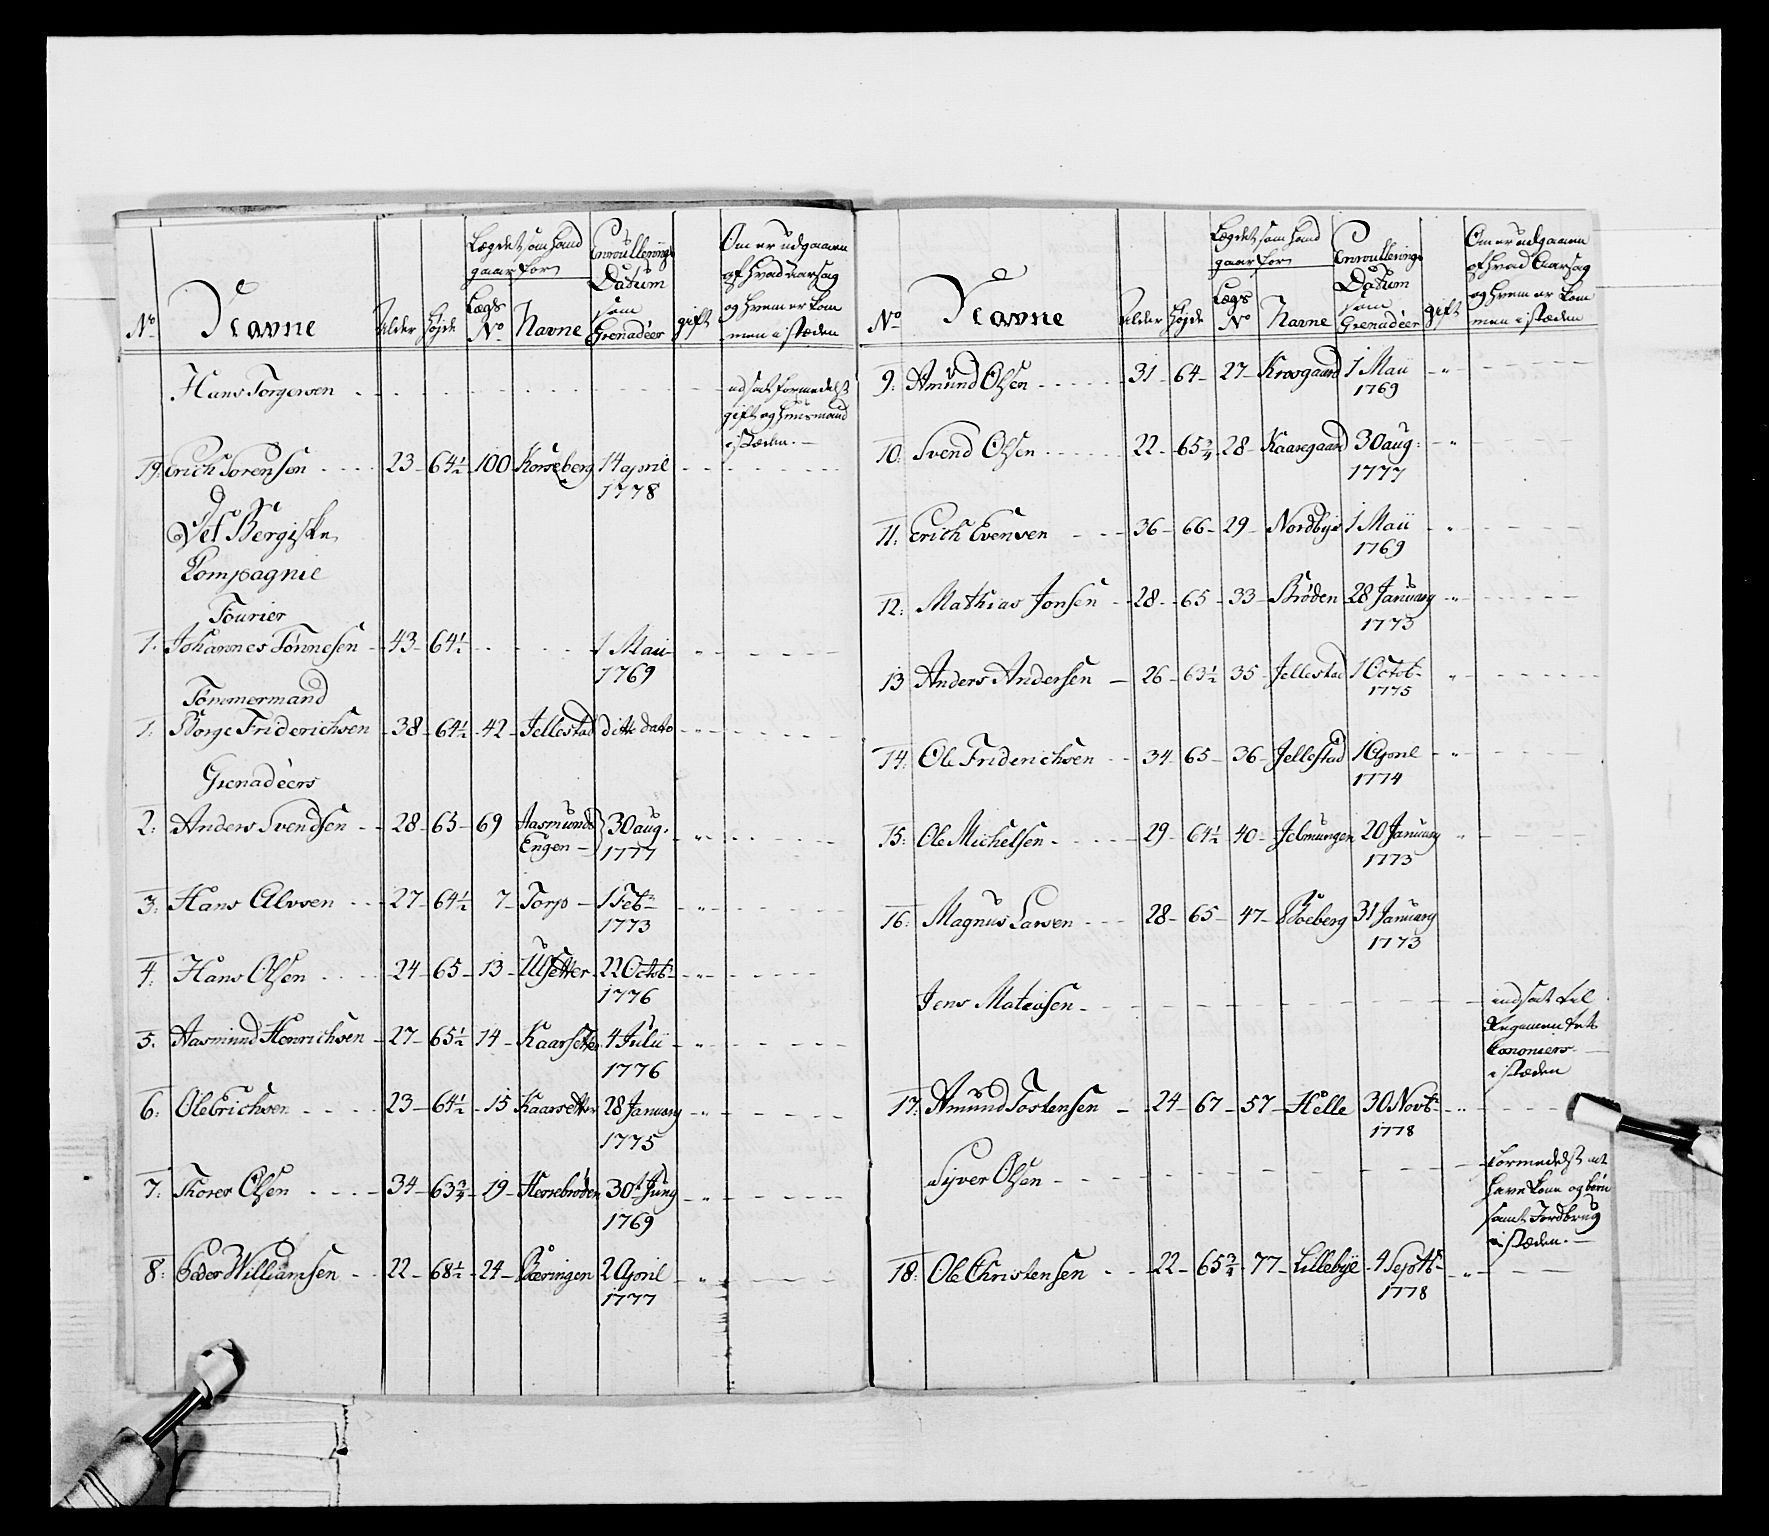 No Navne Alder Højde Lægdet som hand gaar for Lægs No Navne Enroullerings Datum som Grenadéer gift Om er udgaaen af hvad aarsag og hvem er kommen i stæden
Hans Torgersen udsat formedelst
gift og huusmand
i stæden.
19: Erich Sørensøn 23 64½ 100 Korseberg 14 april
1778
Det Bergiske
Compagnie
Fourier
1. Johannes Tønnesen 43 64½ 1 Maii
1769
Tømmermand
1: Børge Friderichsen 38 64½ 42 Jellestad ditto dato
Grenadéers
2: Anders Svendsen 28 65 69 Aasmunds 30 aug.
Engen 1777
3: Hans Alvsen 27 64½ 7 Torp 1 Febr
1773
4: Hans Olsen 24 65 13 Ulsetter 22 Octobr
1776
5. Aasmund Henrichsen 27 65½ 14 Kaarsetter 4 Julii
1776
6: Ole Erichsen 23 64½ 15 Kaarsetter 28 January
1775
7: Thorer Olsen 34 63¾ 19 Hersebrøden 30t Juny
1769
8: Peder Williamsen 22 68½ 24 Børingen 2 April
1777
No Navne Alder Højde Lægdet som hand gaar for Lægs No Navne Enroullerings Datum som Grenadéer gift Om er udgaaen af hvad Aarsag og hvem er kommen i stæden
9: Amund Olsen 31 64 27 Krosgaard 1 Maii
1769
10: Svend Olsen 22 65¾ 28 Kaaregaard 30 aug:
1777
11: Erich Evensen 36 66 29 Nordbye 1 Maii
1769
12: Mathias Jonsen 28 65 33 Brøden 28 January
1773
13 Anders Andersen 26 63½ 35 Jellestad 1 Octobr
1775
14: Ole Friderichsen 34 65 36 Jellestad 1 April
1774
15: Ole Michelsen 29 64½ 40 Jelmungen 20 January
1773
16: Magnus Larsen 28 65 47 Boeberg 31 January
1773
Jens Matiasen indsat til
Regementets
Canoniers
i stæden
17: Amund Tostensen 24 67 57 Helle 30 Novbr
1778
Syver Olsen formedelst at
have kone og børn
samt Jordbrug
i stæden.
18: Ole Christensen 22 65¾ 77 Lillebye 4 Septbr
1778